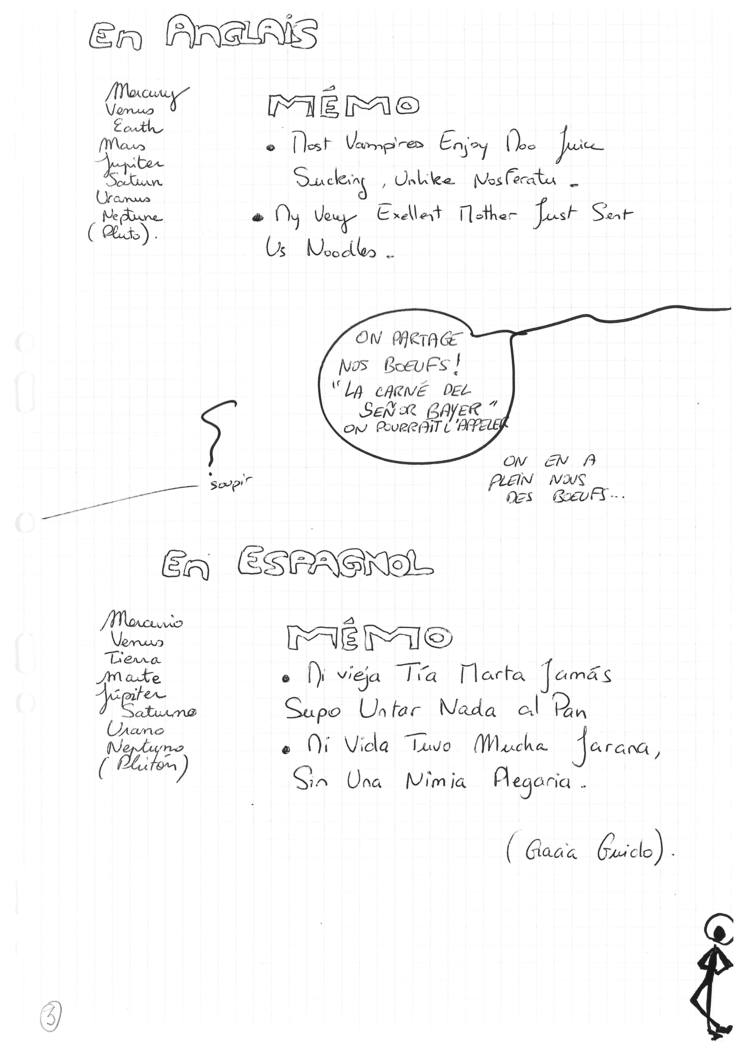 En ANGLAIS
Mercury
Venus
Earth
Mars
Jupiter
Saturn
Uranus
Neptune
(Pluto).
MÉMO
• Most Vampires Enjoy Moo Juice
Sucking, Unlike Nosferatu.
• My Very Exellent Mother Just Sent
Us Noodles..
ON PARTAGE
NOS BOEUFS!
"LA CARNÉ DEL
SEÑOR BAYER"
ON POURRAIT L'APPELER
soupir
ON EN A
PLEIN NOUS
DES BOEUFS...
En ESPAGNOL
Mercurio
Venus
Tierra
Marte
Júpiter
Saturno
Urano
Neptuno
(Plutón)
MÉMO
• Mi vieja Tía Marta Jamás
Supo Untar Nada al Pan
• Mi Vida Tuvo Mucha Jarana,
Sin Una Nimia Plegaria.
(Gracia Guido).
3